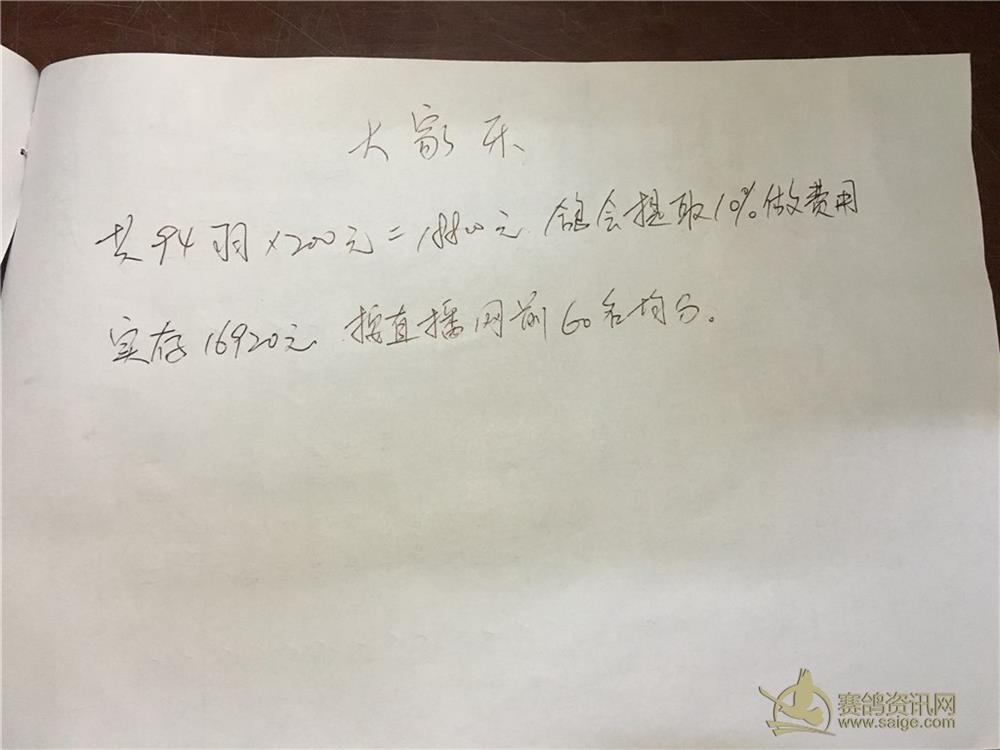 大家乐
共94羽×200元=18800元 鸽会提取10%做费用
实存16920元 按直播网前60名均分。
赛鸽资讯网
www.saige.com